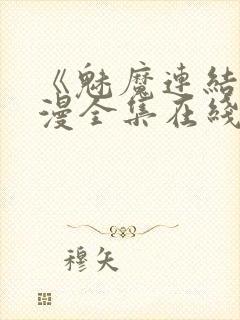 《魅魔連結
漫全集在綫
穆矢